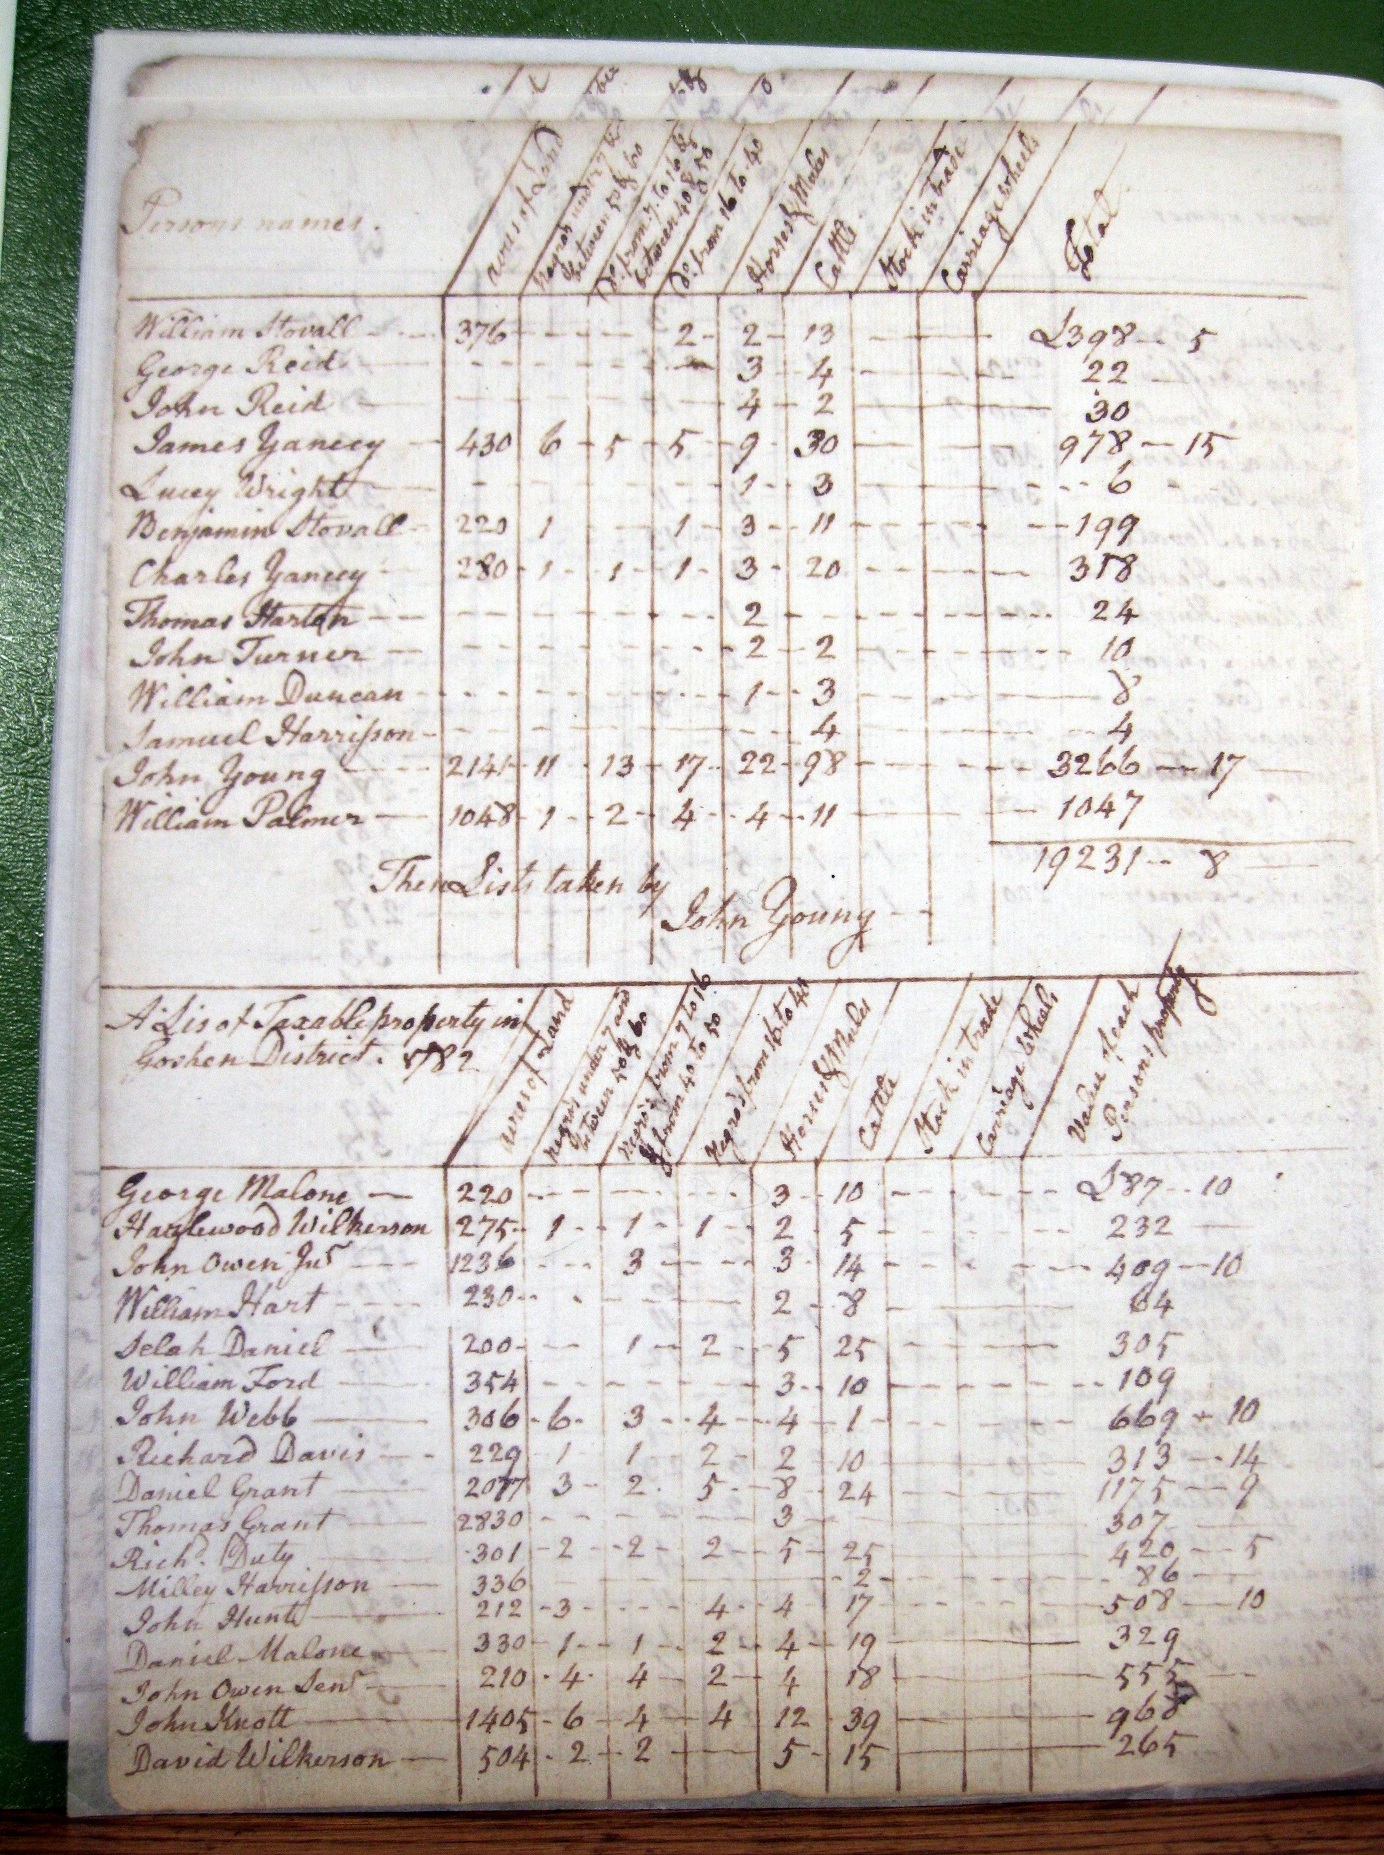 Persons names.
acres of Land
Negros under 7 &
between 50 & 60
Do. from 7 to 16 &
between 40 & 50
Do. from 16 to 40
Horses & Mules
Cattle
Stock in trade
Carriage wheels
Total
William Stovall 376 - - 2 - 2 - 13 £398 - 5
George Reid - - - - 3 - 4 22
John Reid - - - - 4 - 2 30
James Yancey 430 6 - 5 - 5 - 9 - 30 978 - 15
Lucey Wright - - - - 1 - 3 6
Benjamin Stovall 220 1 - 1 - 3 - 11 199
Charles Yancey 280 - 1 - 1 - 1 - 3 - 20 318
Thomas Harton - - - - 2 - 24
John Turner - - - - 2 - 2 10
William Duncan - - - - 1 - 3 8
Samuel Harrisson - - - - - 4 4
John Young 2141 - 11 - 13 - 17 - 22 - 98 3266 - 17
William Palmer 1048 - 1 - 2 - 4 - 4 - 11 1047
19231 - 8
Then Lists taken by
John Young
A Lis of Taxable property in
Goshen District. 1782
acres of Land
Negros under 7 and
between 50 & 60
Negros from 7 to 16
& from 40 to 50
Negros from 16 to 40
Horses & Mules
Cattle
Stock in trade
Carriage Wheels
Value of each
Persons property
George Malone 220 - - - 3 - 10 £87 - 10
Hazlewood Wilkerson 275 - 1 - 1 - 1 - 2 - 5 232
John Owen Junr 1236 - 3 - - 3 - 14 409 - 10
William Hart 230 - - - - 2 - 8 64
Selah Daniel 200 - - 1 - 2 - 5 - 25 305
William Ford 354 - - - - 3 - 10 109
John Webb 306 - 6 - 3 - 4 - 4 - 1 669 - 10
Richard Davis 229 - 1 - 1 - 2 - 2 - 10 313 - 14
Daniel Grant 2077 3 - 2 - 5 - 8 - 24 1175 - 9
Thomas Grant 2830 - - - - 3 307
Richd. Duty 301 - 2 - 2 - 2 - 5 - 25 420 - 5
Milley Harrisson 336 - - - - - 2 86
John Hunt 212 - 3 - - 4 - 4 - 17 508 - 10
Daniel Malone 330 - 1 - 1 - 2 - 4 - 19 329
John Owen Senr 210 - 4 - 4 - 2 - 4 18 555
John Knott 1405 - 6 - 4 - 4 12 - 39 968
David Wilkerson 504 - 2 - 2 - 5 - 15 265